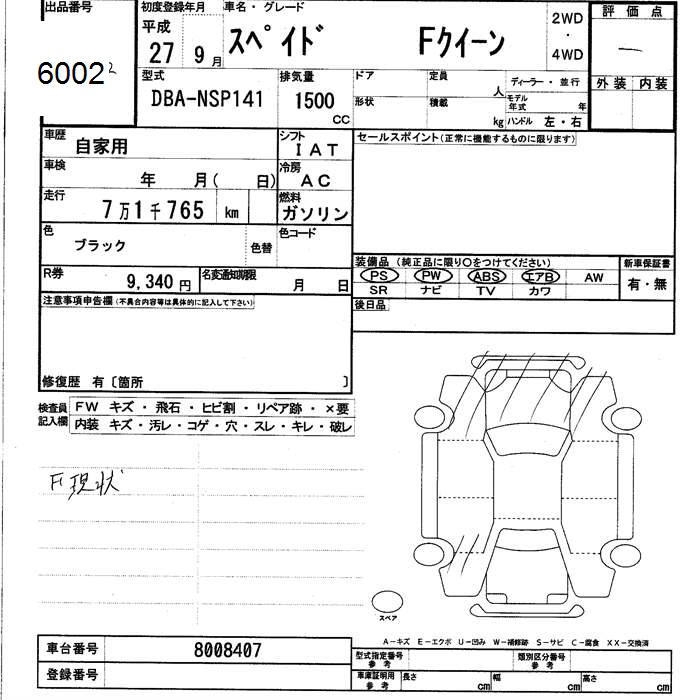 出品番号
60022
初度登録年月
平成
27 9 月
車名・グレード
スペイド Fクイーン
2WD
・
4WD
評価点
―
外装 内装
型式
DBA-NSP141
排気量
1500
CC
ドア
定員
人
形状
積載
kg
ディーラー・並行
モデル年式 年
ハンドル 左・右
車歴
自家用
シフト
IAT
車検
年 月( 日)
冷房
AC
走行
7万1千765 km
燃料
ガソリン
色
ブラック
色替
色コード
R券
9,340円
名変通知期限
月 日
セールスポイント(正常に機能するものに限ります)
装備品 (純正品に限り〇をつけてください)
PS PW ABS エアB AW
SR ナビ TV カワ
新車保証書
有・無
後日品
注意事項申告欄(不具合内容等は具体的に記入して下さい)
修復歴 有〔箇所 〕
検査員記入欄
FW キズ・飛石・ヒビ割・リペア跡・×要
内装 キズ・汚レ・コゲ・穴・スレ・キレ・破レ
F 現状
スペア
A-キズ E-エクボ U-凹み W-補修跡 S-サビ C-腐食 XX-交換済
車台番号
8008407
登録番号
型式指定番号
参考
類別区分番号
参考
車庫証明用
参考
長さ cm
幅 cm
高さ cm